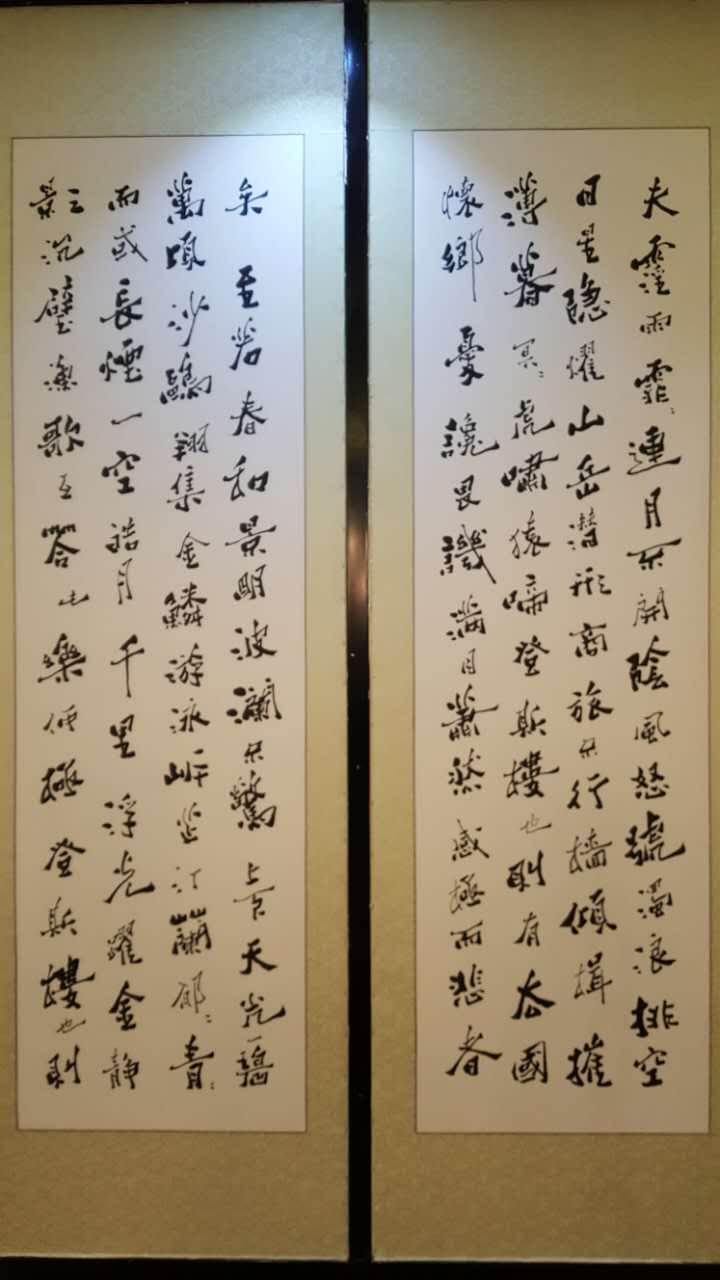 夫霪雨霏〻連月不開陰風怒號濁浪排空
日星隐燿山岳潜形商旅不行檣傾楫摧
薄暮冥〻虎嘯猿啼登斯樓也則有去國
懷鄉憂讒畏譏滿目蕭然感極而悲者
矣至若春和景明波瀾不驚上下天光一碧
萬頃沙鷗翔集金鱗游泳岸芷汀蘭郁〻青〻
而或長煙一空皓月千里浮光躍金静
影沉璧漁歌互答此樂何極登斯樓也則